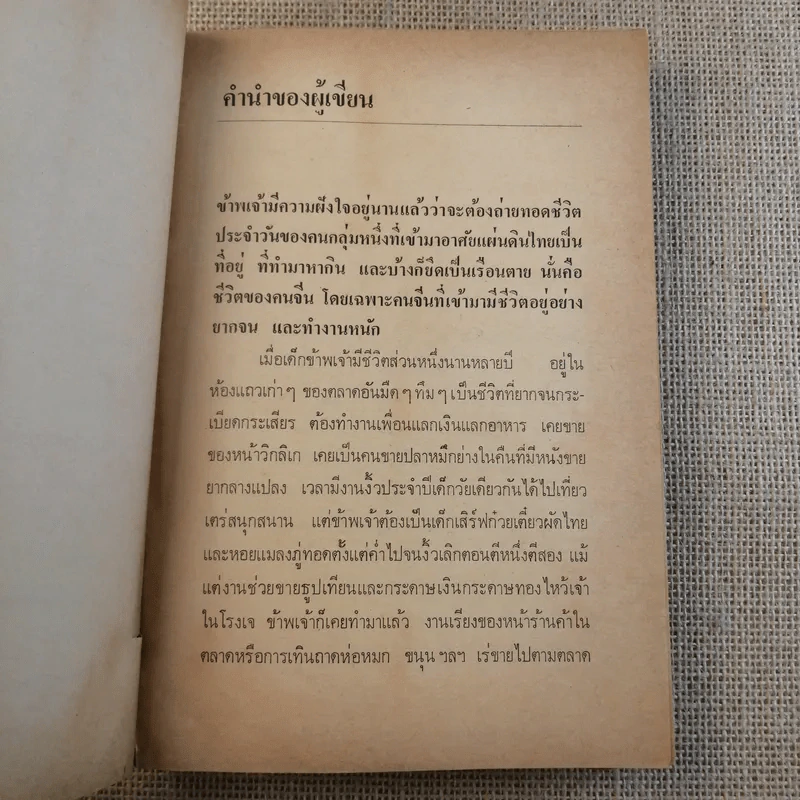 คำนำของผู้เขียน
ข้าพเจ้ามีความฝังใจอยู่นานแล้วว่าจะต้องถ่ายทอดชีวิต
ประจำวันของคนกลุ่มหนึ่งที่เข้ามาอาศัยแผ่นดินไทยเป็น
ที่อยู่ ที่ทำมาหากิน และบ้างก็ยึดเป็นเรือนตาย นั่นคือ
ชีวิตของคนจีน โดยเฉพาะคนจีนที่เข้ามามีชีวิตอยู่อย่าง
ยากจน และทำงานหนัก
เมื่อเด็กข้าพเจ้ามีชีวิตส่วนหนึ่งนานหลายปี อยู่ใน
ห้องแถวเก่าๆ ของตลาดอันมืดๆทึมๆ เป็นชีวิตที่ยากจนกระ-
เบียดกระเสียร ต้องทำงานเพื่อนแลกเงินแลกอาหาร เคยขาย
ของหน้าวิกลิเก เคยเป็นคนขายปลาหมึกย่างในคืนที่มีหนังขาย
ยากลางแปลง เวลามีงานงิ้วประจำปีเด็กวัยเดียวกันได้ไปเที่ยว
เตร่สนุกสนาน แต่ข้าพเจ้าต้องเป็นเด็กเสิร์ฟก๋วยเตี๋ยวผัดไทย
และหอยแมลงภู่ทอดตั้งแต่ค่ำไปจนงิ้วเลิกตอนตีหนึ่งตีสอง แม้
แต่งานช่วยขายธูปเทียนและกระดาษเงินกระดาษทองไหว้เจ้า
ในโรงเจ ข้าพเจ้าก็เคยทำมาแล้ว งานเรียงของหน้าร้านค้าใน
ตลาดหรือการเทินถาดห่อหมก ขนุน ฯลฯ เร่ขายไปตามตลาด